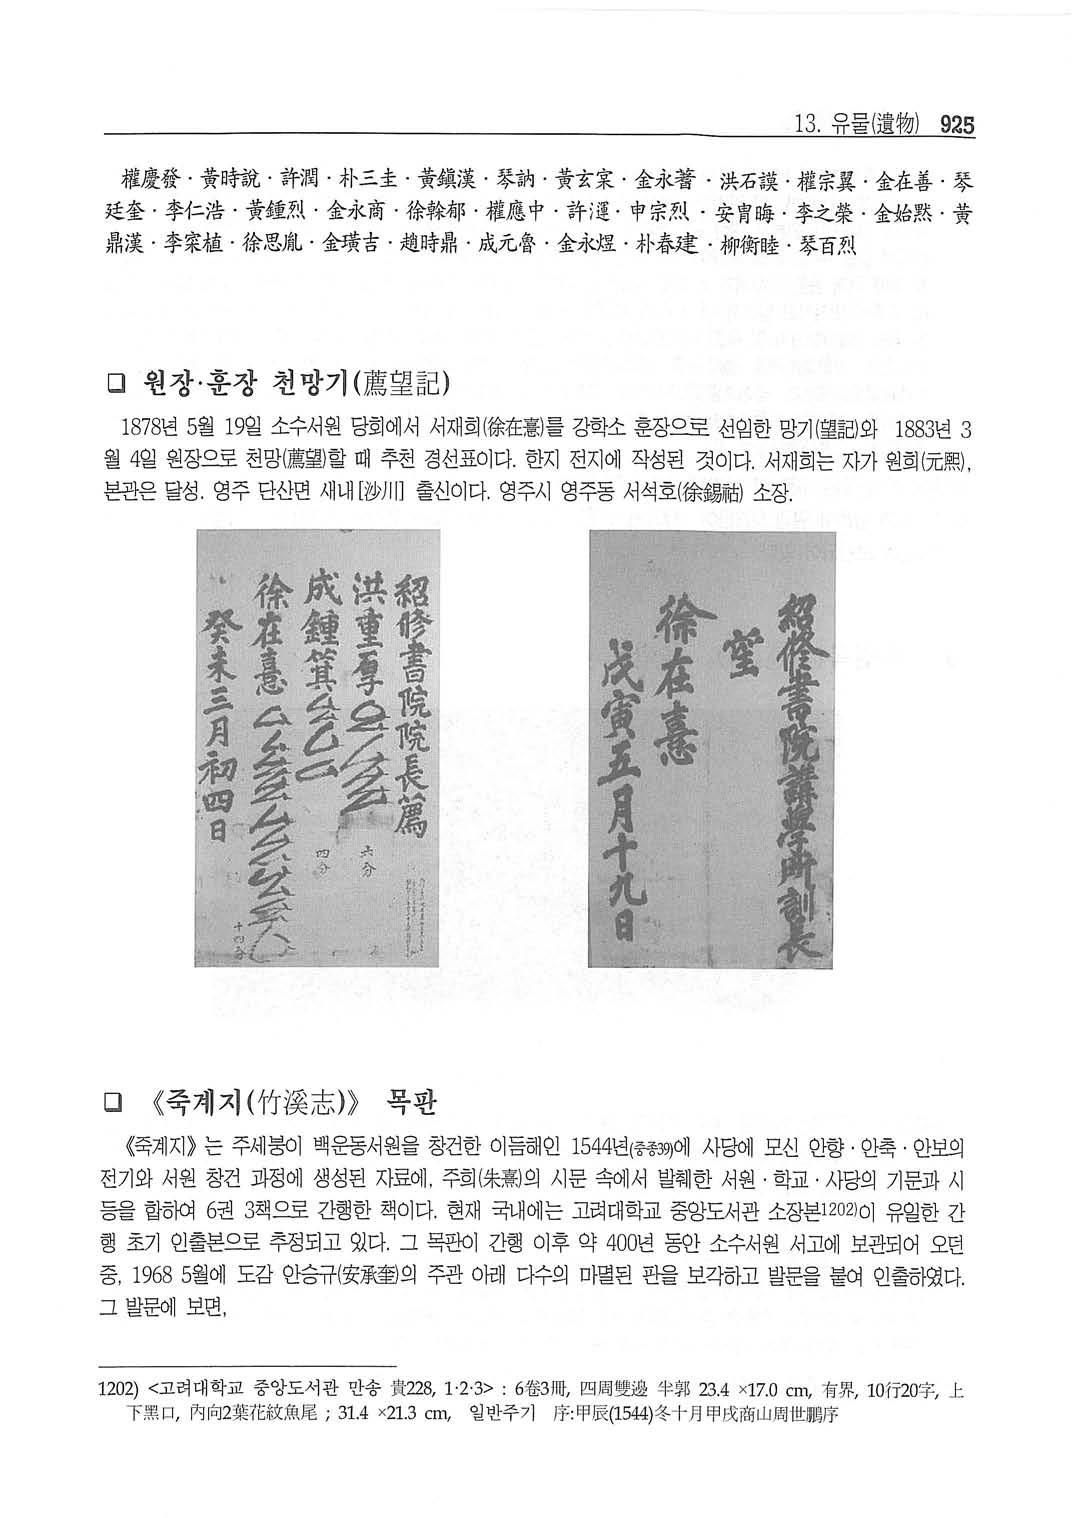 13. 유물(遺物) 925
權慶發·黃時說·許潤·朴三圭·黃鎭漢·琴訥·黃玄寀·金永蓍·洪石謨·權宗翼·金在善·琴
廷奎·李仁浩·黃鍾烈·金永商·徐榦郁·權應中·許·申宗烈·安胄晦·李之榮·金始黙·黃
鼎漢·李寀植·徐思胤·金璜吉·趙時鼎·成元魯·金永煜·朴春建·柳衡睦·琴百烈
❑ 원장·훈장 천망기(薦望記)
1878년 5월 19일 소수서원 당회에서 서재희(徐在憙)를 강학소 훈장으로 선임한 망기(望記)와 1883년 3
월 4일 원장으로 천망(薦望)할 때 추천 경선표이다. 한지 전지에 작성된 것이다. 서재희는 자가 원희(元熙),
본관은 달성. 영주 단산면 새내[沙川] 출신이다. 영주시 영주동 서석호(徐錫祜) 소장.
紹修書院院長薦
洪重厚
六分
成鍾箕
四分
徐在憙
十四分
癸未三月初四日
紹修書院講學所訓長
望
徐在憙
戊寅五月十九日
❑ 《죽계지(竹溪志)》 목판
《죽계지》는 주세붕이 백운동서원을 창건한 이듬해인 1544년(중종39)에 사당에 모신 안향·안축·안보의
전기와 서원 창건 과정에 생성된 자료에, 주희(朱熹)의 시문 속에서 발췌한 서원·학교·사당의 기문과 시
등을 합하여 6권 3책으로 간행한 책이다. 현재 국내에는 고려대학교 중앙도서관 소장본1202)이 유일한 간
행 초기 인출본으로 추정되고 있다. 그 목판이 간행 이후 약 400년 동안 소수서원 서고에 보관되어 오던
중, 1968 5월에 도감 안승규(安承奎)의 주관 아래 다수의 마멸된 판을 보각하고 발문을 붙여 인출하였다.
그 발문에 보면,
1202) <고려대학교 중앙도서관 만송 貴228, 1·2·3> : 6卷3冊, 四周雙邊 半郭 23.4 ×17.0 cm, 有界, 10行20字, 上
下黑口, 內向2葉花紋魚尾 ; 31.4 ×21.3 cm, 일반주기 序:甲辰(1544)冬十月甲戌商山周世鵬序